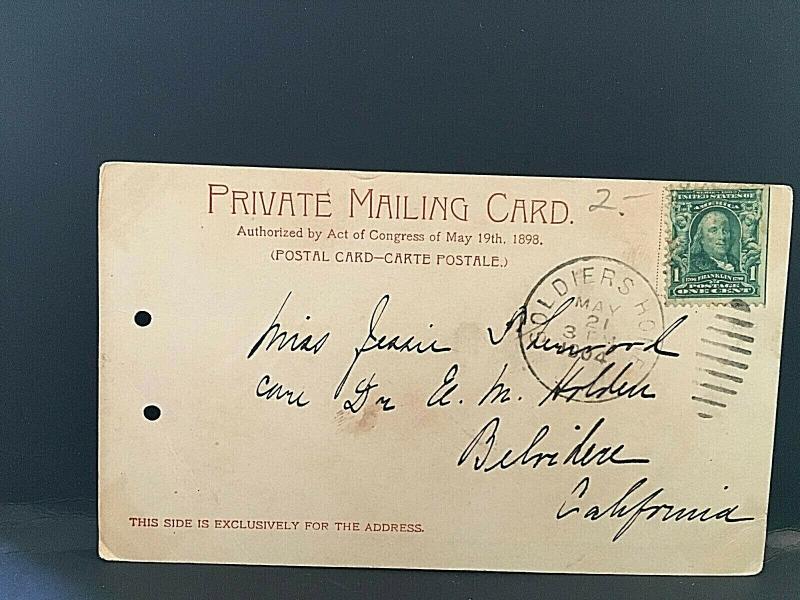 PRIVATE MAILING CARD.
2.-
Authorized by Act of Congress of May 19th, 1898.
(POSTAL CARD—CARTE POSTALE.)
UNITED STATES OF
AMERICA
1 FRANKLIN 1
POSTAGE
ONE CENT
SOLDIERS HO
MAY
21
3
1904
Miss Jessie Sherwood
care Dr E. M. Holden
Belvidere
California
THIS SIDE IS EXCLUSIVELY FOR THE ADDRESS.